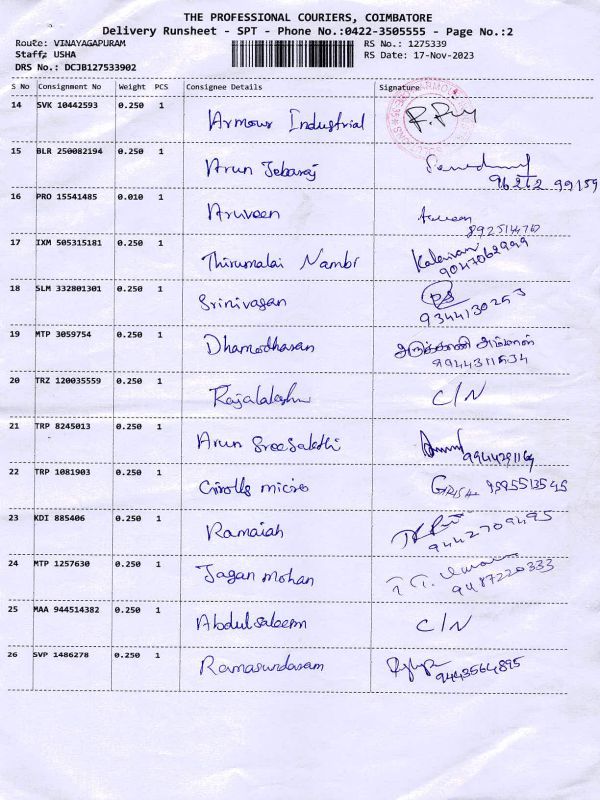 THE PROFESSIONAL COURIERS, COIMBATORE
Delivery Runsheet - SPT - Phone No.:0422-3505555 - Page No.:2
Route: VINAYAGAPURAM RS No.: 1275339
Staff: USHA RS Date: 17-Nov-2023
DRS No.: DCJB127533902
S No Consignment No Weight PCS Consignee Details Signature
14 SVK 10442593 0.250 1 Armour Industrial
15 BLR 250082194 0.250 1 Arun Jebaraj
99159
16 PRO 15541485 0.010 1 Aruveen
17 IXM 505315181 0.250 1 Thirumalai Nambi
9047062999
18 SLM 332801301 0.250 1 Srinivasan PS
9344130253
19 MTP 3059754 0.250 1 Dhamodharan
9944311534
20 TRZ 120035559 0.250 1 C/N
21 TRP 8245013 0.250 1 Arun Sreesakthi
22 TRP 1081903 0.250 1 micro 9595513545
23 KDI 885406 0.250 1 Ramaiah
9442709495
24 MTP 1257630 0.250 1 Jagan mohan
9487220333
25 MAA 944514382 0.250 1 Abdulsaleem C/N
26 SVP 1486278 0.250 1
9443564895